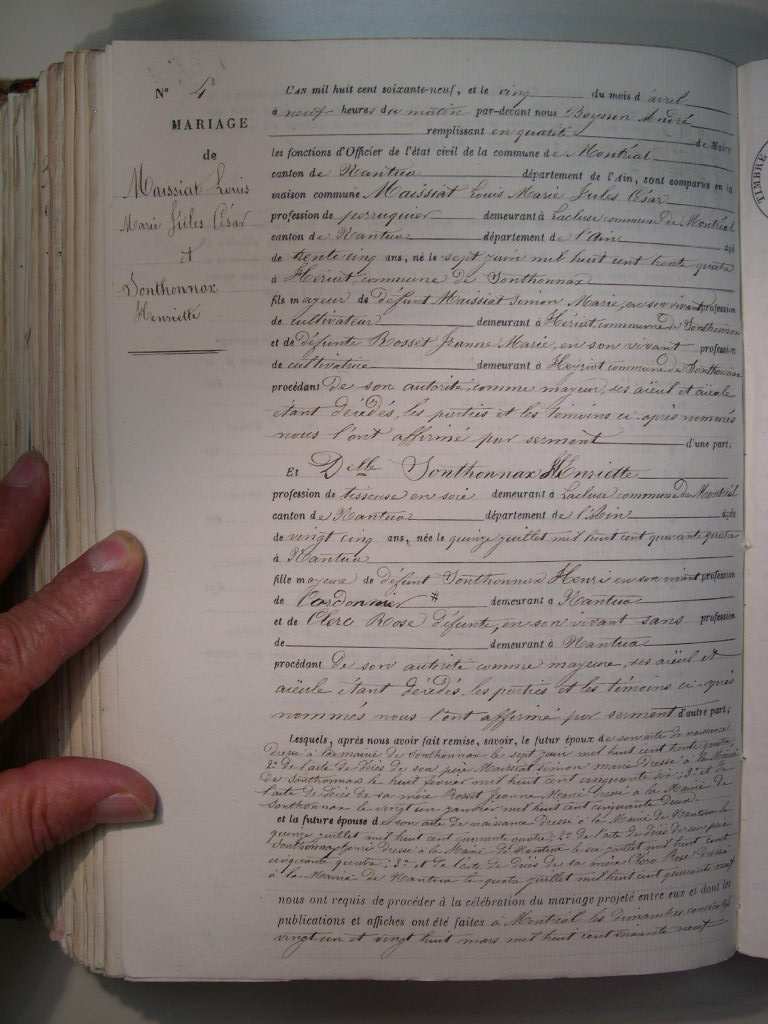 N° 4
MARIAGE
de
Maissiat Louis
Marie Jules César
et
Sonthonnax
Henriette
L'AN mil huit cent soixante-neuf, et le cinq du mois d'avril
à neuf heures du matin par-devant nous André
remplissant en qualité de Maire
les fonctions d'Officier de l'état civil de la commune de Montréal
canton de Nantua département de l'Ain, sont comparus en la
maison commune Maissiat Louis Marie Jules César
profession de perruquier demeurant à Lacluse commune de Montréal
canton de Nantua département de l'Ain âgé
de trente cinq ans, né le sept juin mil huit cent trente quatre
à Heriat, commune de Sonthonnax
fils majeur de défunt Maissiat Simon Marie, en son vivant profession
de cultivateur demeurant à Heriat, commune de Sonthonnax
et de défunte Rosset Jeanne Marie, en son vivant profession
de cultivatrice demeurant à Heyriat commune de Sonthonnax
procédant de son autorité, comme majeur, ses aïeul et aïeule
étant décédés, les parties et les témoins ci-après nommés
nous l'ont affirmé par serment d'une part;
Et Delle Sonthonnax Henriette
profession de tisseuse en soie demeurant à Lacluse commune de Montréal
canton de Nantua département de l'Ain âgée
de vingt cinq ans, née le quinze juillet mil huit cent quarante quatre
à Nantua
fille majeure de défunt Sonthonnax Henri en son vivant profession
de Cordonnier # demeurant à Nantua
et de Clerc Rose défunte, en son vivant sans profession
de demeurant à Nantua
procédant de son autorité comme majeure, ses aïeul et
aïeule étant décédés, les parties et les témoins ci-après
nommés nous l'ont affirmé par serment d'autre part;
Lesquels, après nous avoir fait remise, savoir, le futur époux de son acte de naissance
dressé à la mairie de Sonthonnax le sept juin mil huit cent trente quatre
2° de l'acte de décès de son père Maissiat Simon Marie dressé à la Mairie
de Sonthonnax le huit mil huit cent cinquante six; 3° et de
l'acte de décès de sa mère Rosset Jeanne Marie dressé à la Mairie de
Sonthonnax le vingt un janvier mil huit cent cinquante deux
et la future épouse de son acte de naissance dressé à la Mairie de Nantua le
quinze juillet mil huit cent quarante quatre; 2° de l'acte de décès de son père
Sonthonnax Henri dressé à la Mairie de Nantua le six juillet mil huit cent
cinquante quatre; 3° et de l'acte de décès de sa mère Clerc Rose dressé
à la Mairie de Nantua le quatre juillet mil huit cent quarante neuf
nous ont requis de procéder à la célébration du mariage projeté entre eux et dont les
publications et affiches ont été faites à Montréal les dimanches consécutifs
vingt un et vingt huit mars mil huit cent soixante neuf
TIMBRE